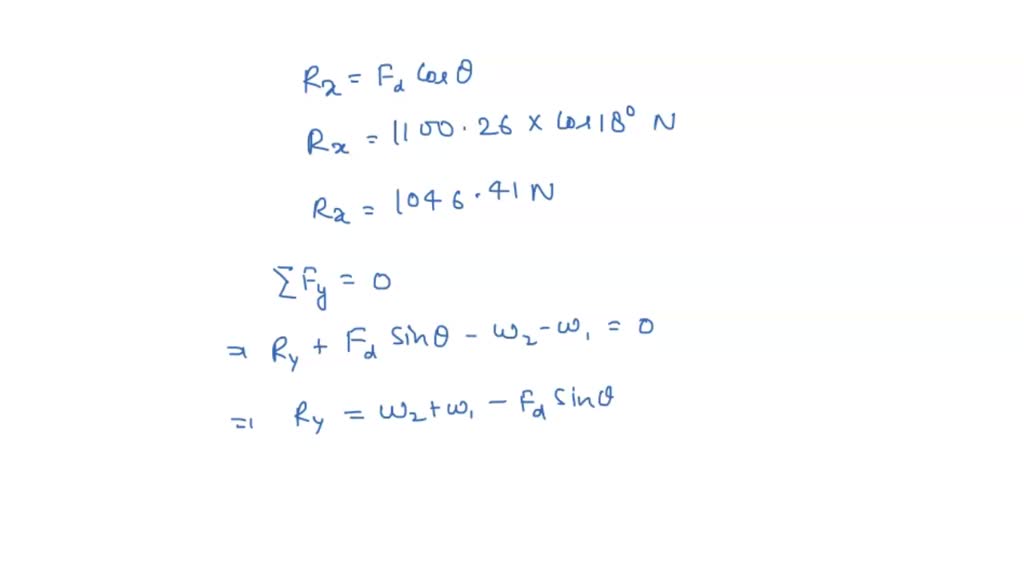 Rx = Fd cos θ
Rx = 1100.26 × cos 18° N
Rx = 1046.41 N
ΣFy = 0
⇒ Ry + Fd sinθ - w2 - w1 = 0
⇒ Ry = w2 + w1 - Fd sinθ